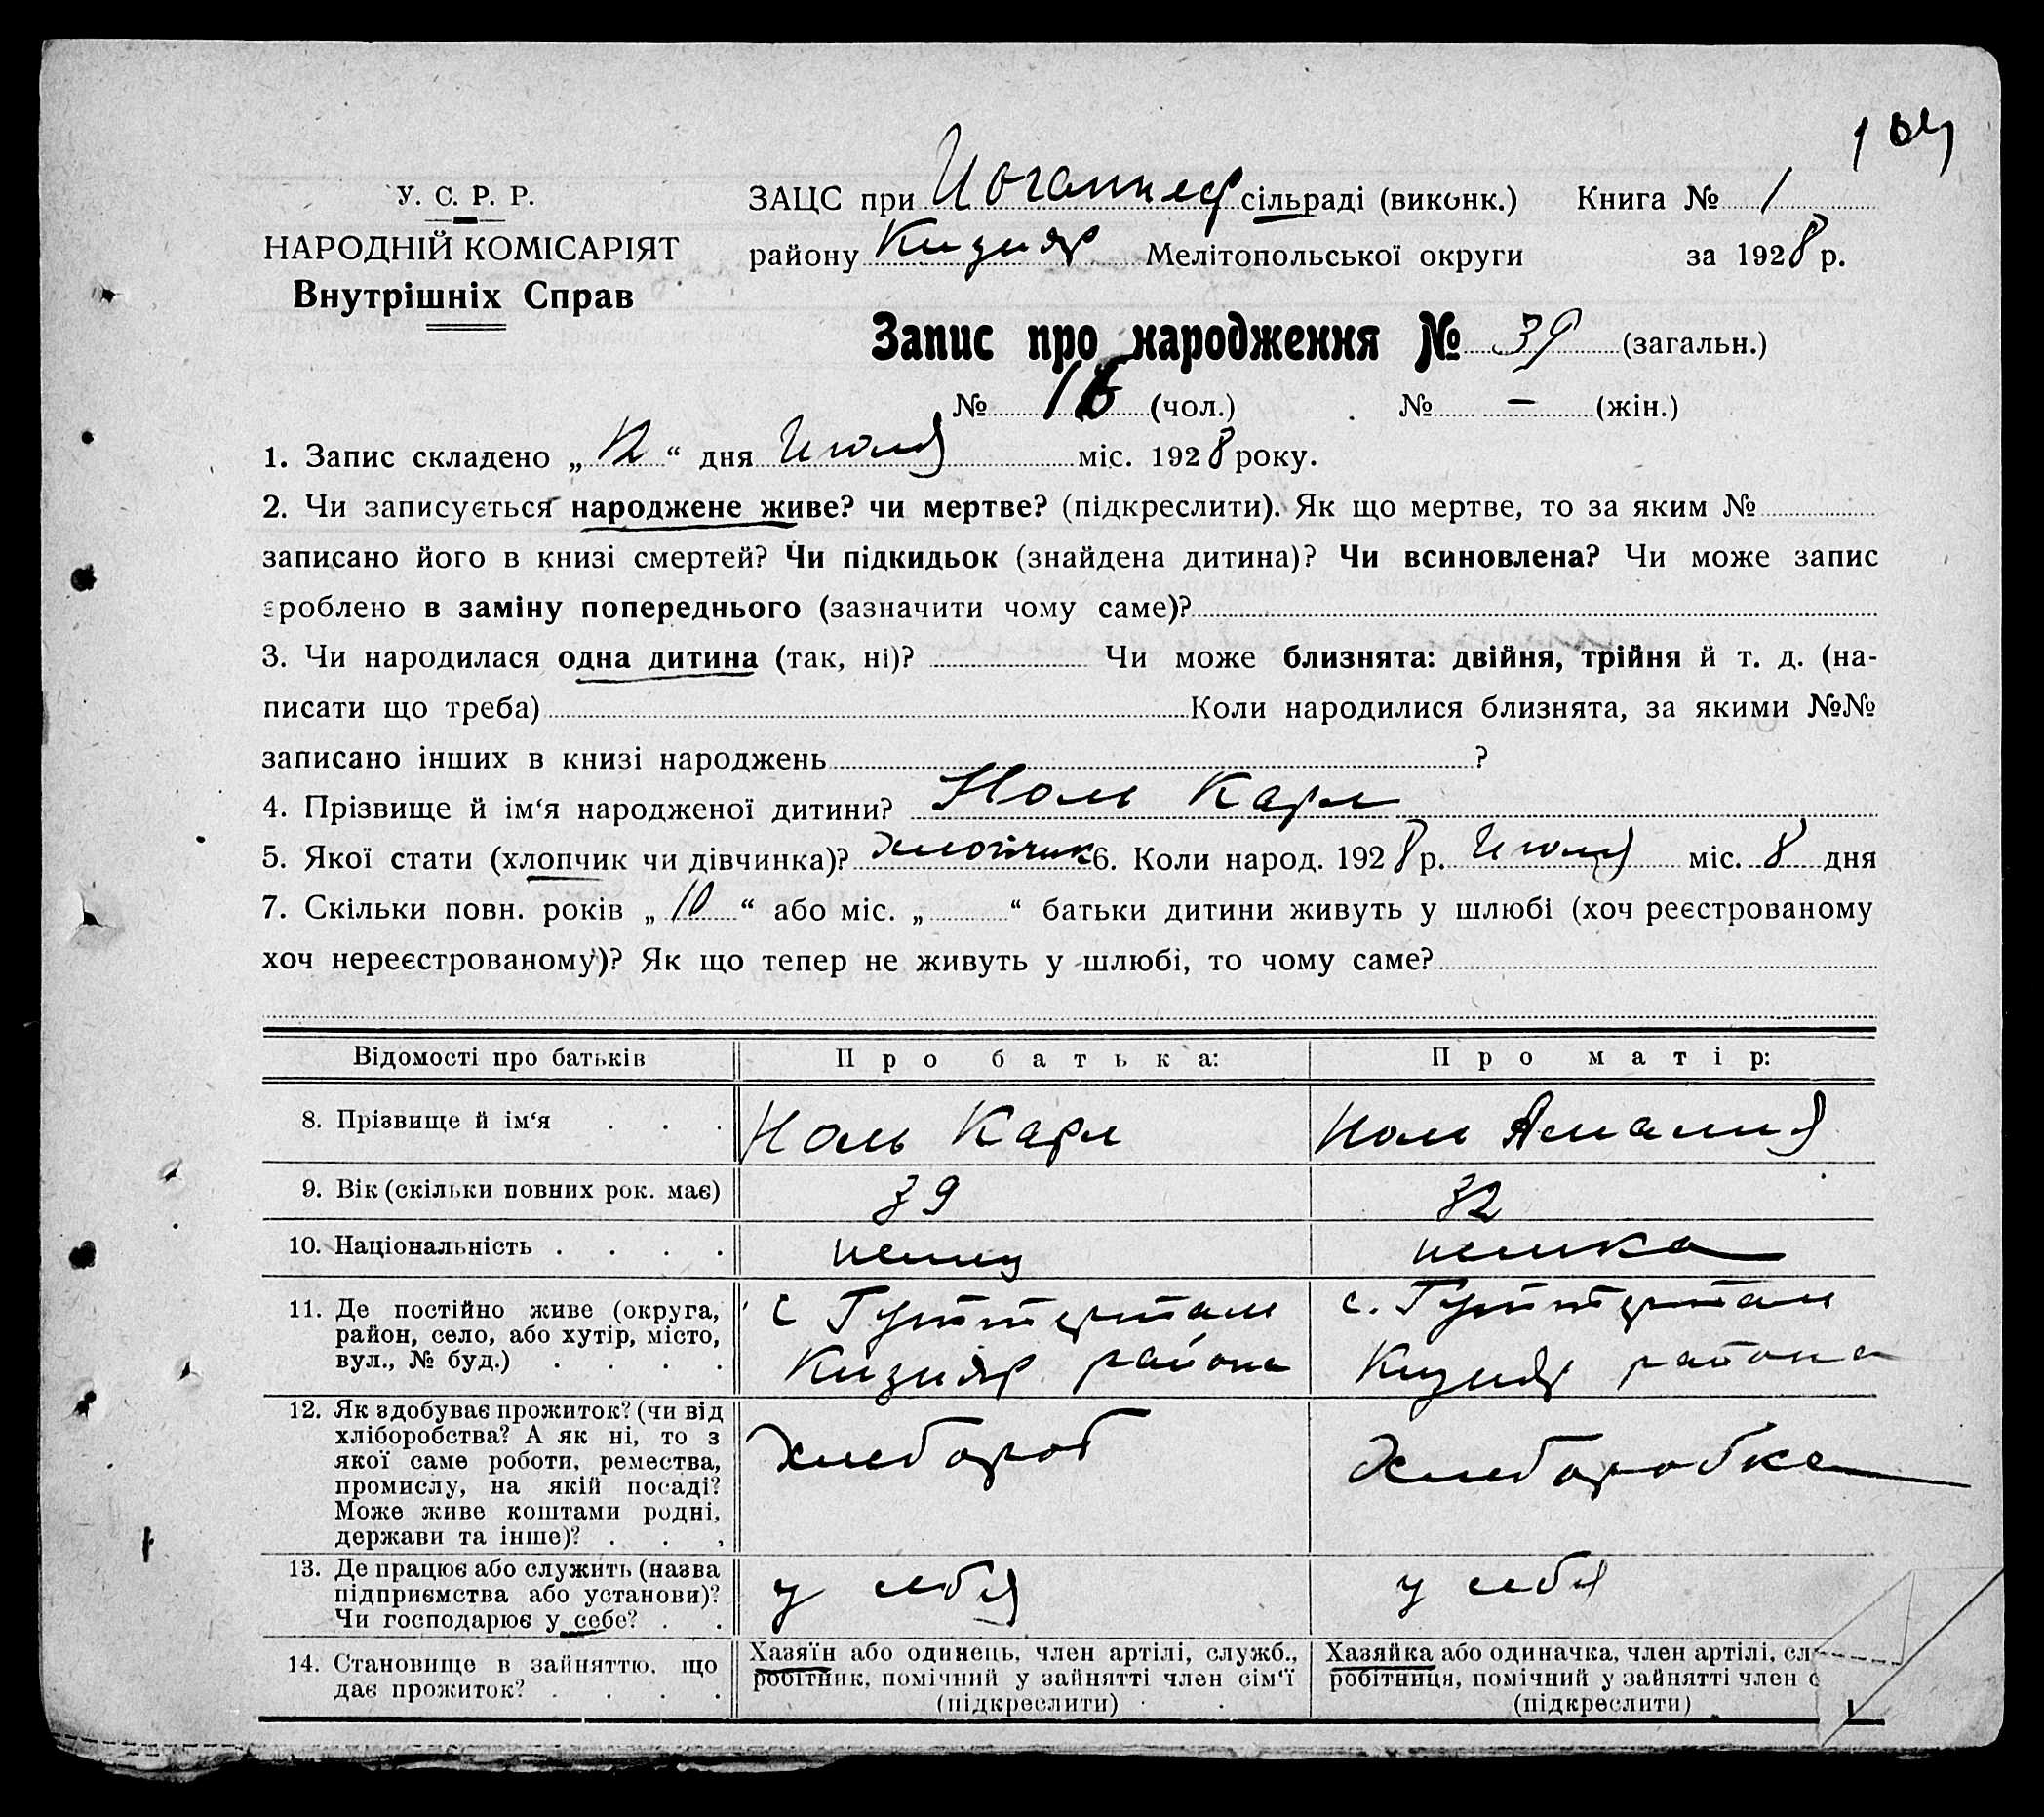 104
У. С. Р. Р.
НАРОДНІЙ КОМІСАРІЯТ
Внутрішніх Справ
ЗАЦС при Иоганнеф сільраді (виконк.) Книга № 1
району Кизияр Мелітопольської округи за 1928 р.
Запис про народження № 39 (загальн.)
№ 16 (чол.) № — (жін.)
1. Запис складено „12“ дня Июля міс. 1928 року.
2. Чи записується народжене живе? чи мертве? (підкреслити). Як що мертве, то за яким №
записано його в книзі смертей? Чи підкидьок (знайдена дитина)? Чи всиновлена? Чи може запис
зроблено в заміну попереднього (зазначити чому саме)?
3. Чи народилася одна дитина (так, ні)? Чи може близнята: двійня, трійня й т. д. (на-
писати що треба) Коли народилися близнята, за якими №№
записано інших в книзі народжень ?
4. Прізвище й ім‘я народженої дитини? Ноль Карл
5. Якої стати (хлопчик чи дівчинка)? хлопчик 6. Коли народ. 1928 р. Июля міс. 8 дня
7. Скільки повн. років „10“ або міс. „ “ батьки дитини живуть у шлюбі (хоч реєстрованому
хоч нереєстрованому)? Як що тепер не живуть у шлюбі, то чому саме?
Відомості про батьків Про батька: Про матір:
8. Прізвище й ім‘я . . . Ноль Карл Ноль Амалия
9. Вік (скільки повних рок. має) 39 32
10. Національність . . . . немец немка
11. Де постійно живе (округа, район, село, або хутір, місто, вул., № буд.) . . . .
с Гуттерталь
Кизияр района
с. Гуттерталь
Кизияр района
12. Як здобуває прожиток? (чи від хліборобства? А як ні, то з якої саме роботи, ремества, промислу, на якій посаді? Може живе коштами родні, держави та інше)? . . .
хлебороб хлеборобка
13. Де працює або служить (назва підприємства або установи)? Чи господарює у себе? . .
у себя у себя
14. Становище в зайняттю, що дає прожиток? . . . .
Хазяїн або одинець, член артілі, служб., робітник, помічний у зайнятті член сім‘ї (підкреслити)
Хазяйка або одиначка, член артілі, сл
робітниця, помічний у зайнятті член с
(підкреслити)